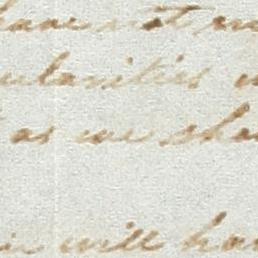 have not
ularities
as we sha
will ha